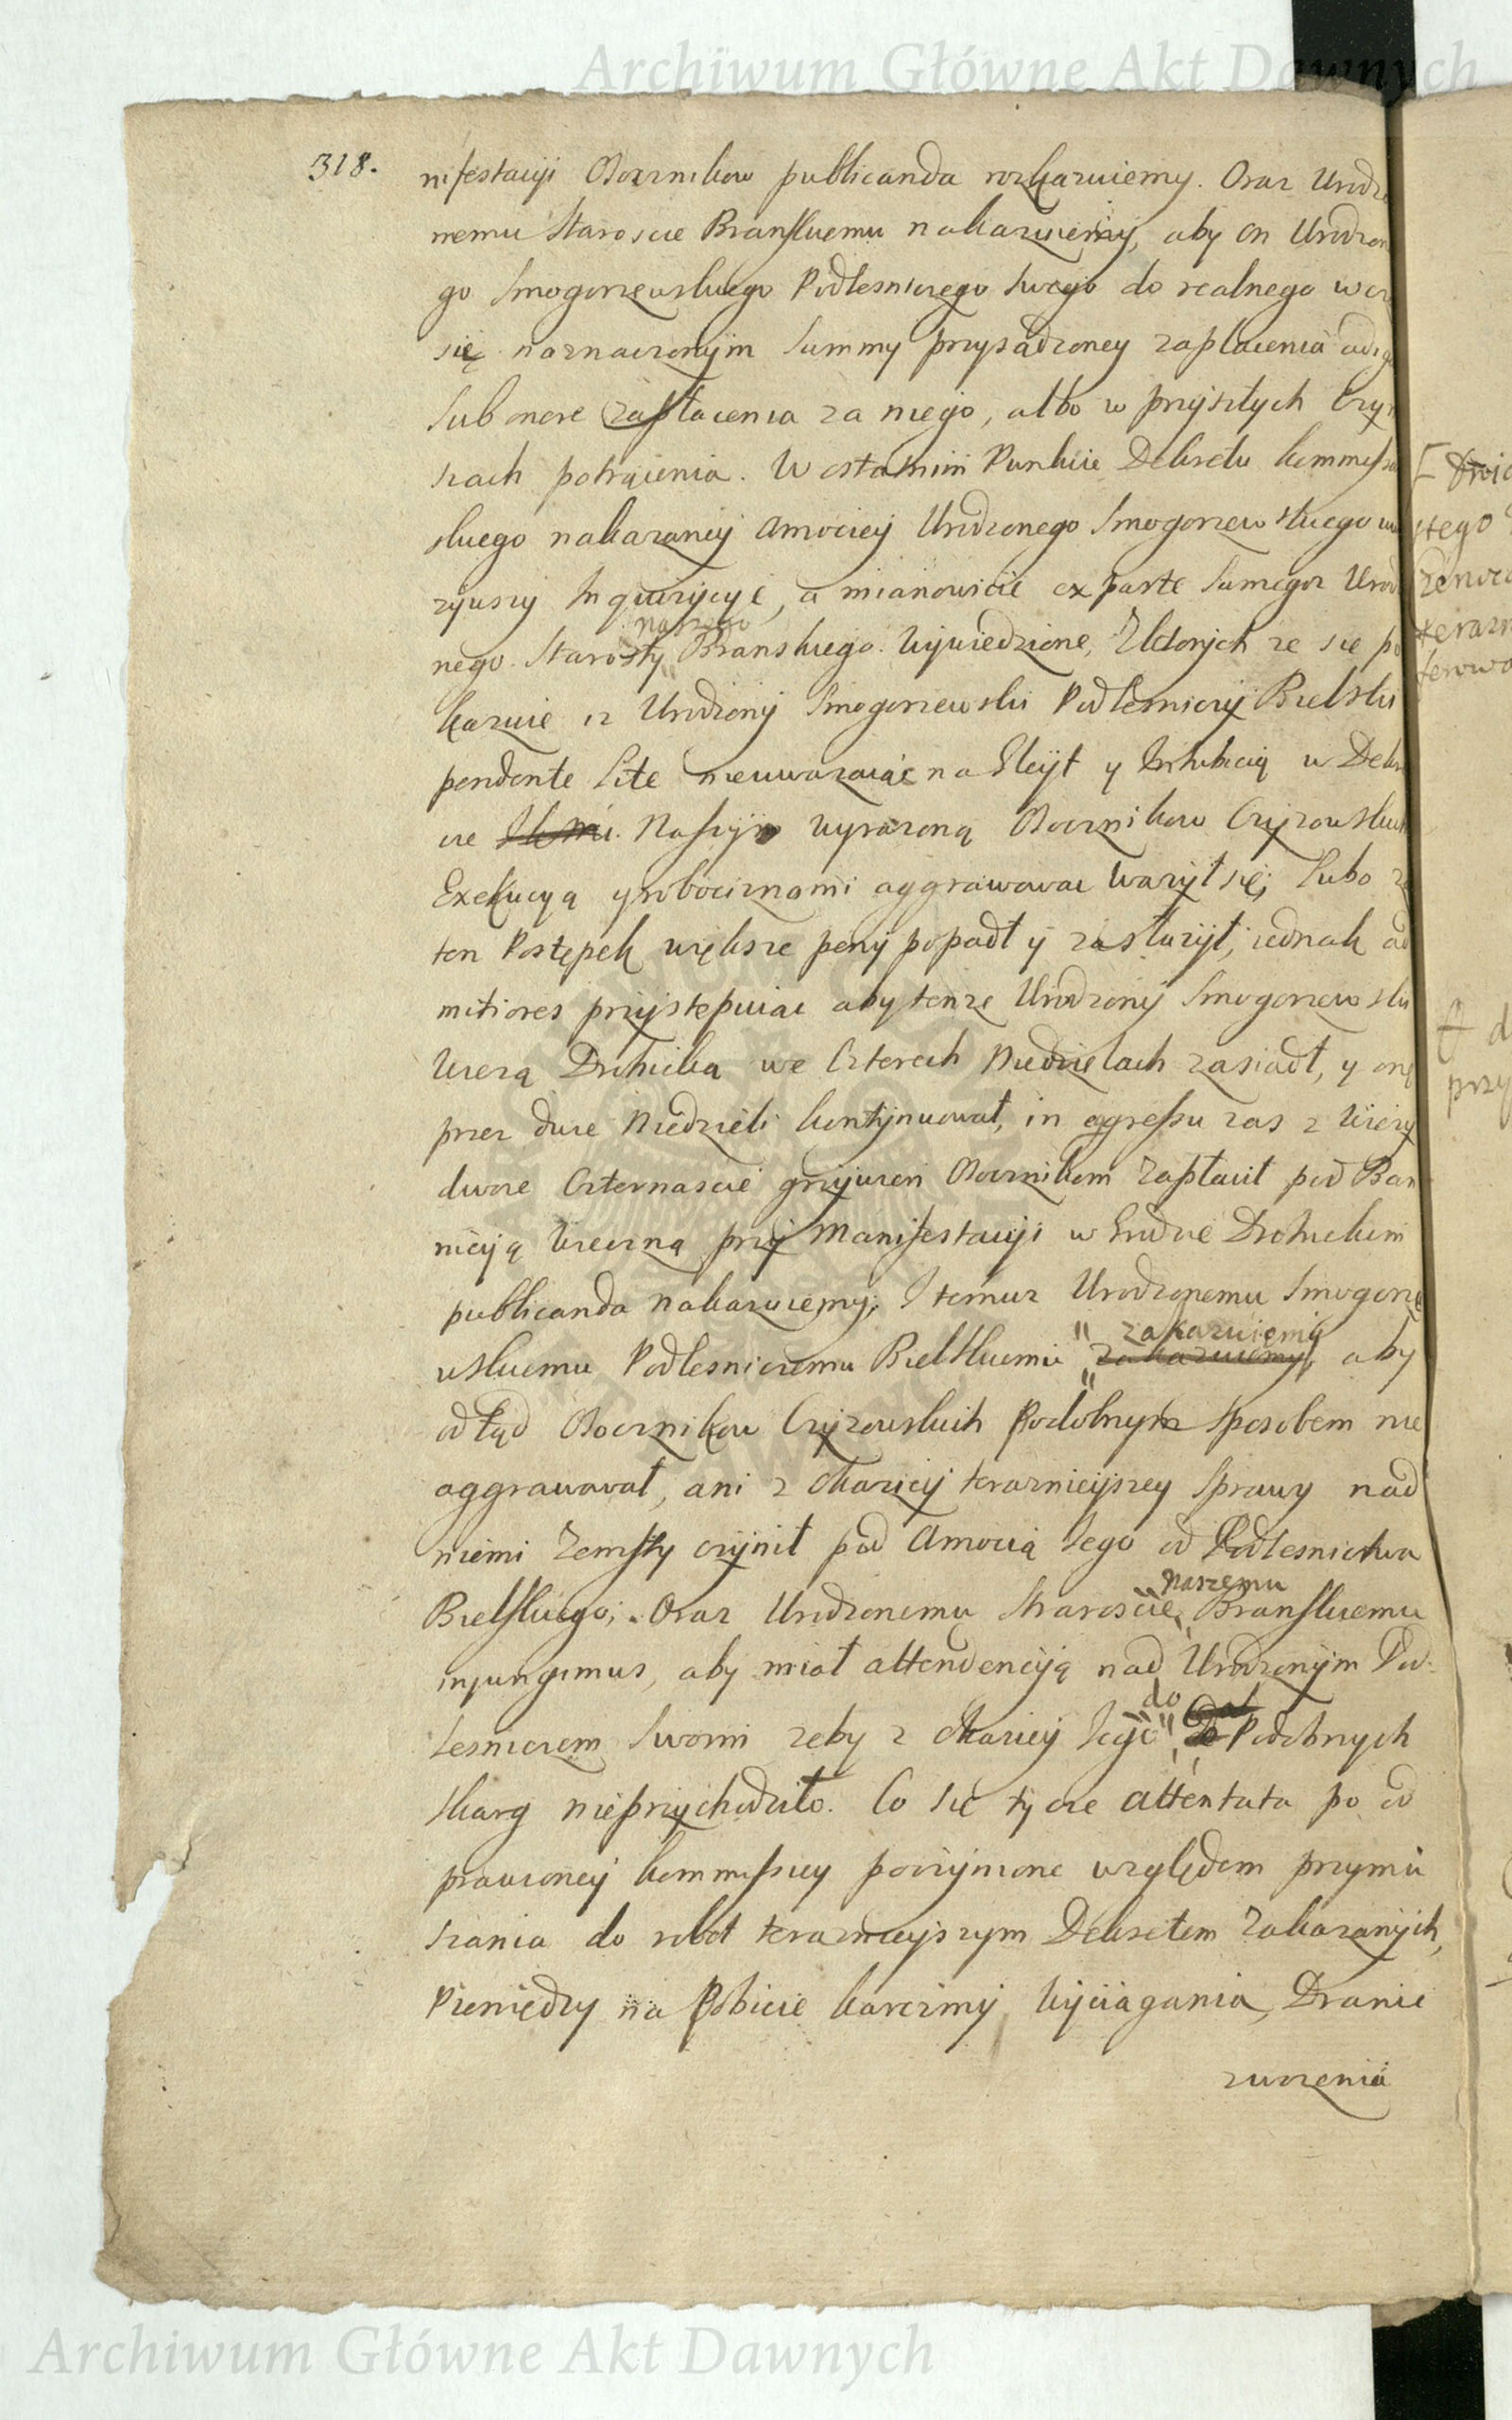 Archiwum Główne Akt Dawnych
318.
nifestacyi Boczników publicanda rozkazuiemy. Oraz Urodzo
nemu Staroscie Branskiemu nakazuiemy, aby on Urodzone
go Smogorzewskiego Podlesniczego swego do realnego w cza
się naznaczonym Summy przysądzoney zapłacenia adig
sub onere zapłacenia za niego, albo w przyszłych Czyn
szach potrącenia. W ostatnim Punkcie Dekretu kommiss
skiego nakazaney amocyey Urodzonego Smogorzewskiego
Inquizycyę, a mianowicie ex parte samegoz Urodzo
naszego
nego Starosty Branskiego Wywiedzione, Z ktorych ze się po
kazuie iz Urodzony Smogorzewski Podlesniczy Bielski
pendente lite nieuwazaiąc na Gleyt y Inhibicią w Dekre
cie Naszym wyrazoną Boczników Czyzowskich
Exekucyą y robociznami aggrawować wazył się; lubo za
ten Postępek większe peny popadł y zasłuzył, iednak ad
mitiores przystepuiąc aby tenze Urodzony Smogorzewski
Wiezą Drohicką we Czterech Niedzielach zasiadł, y onę
przez dwie Niedzieli kontynuował, in egressu zas z Wiezy
dwoie Czternascie grzywien Bocznikom zapłacił pod Ban
nicyą Wieczną przy Manifestacyi w Grodzie Drohickim
publicanda nakazuiemy; I temuz Urodzonemu Smogorze
zakazuiemy
wskiemu Podlesniczemu Bielskiemu zakazuiemy, aby
odtąd Boczników Czyzowskich Podobnym sposobem nie
aggrawował, ani z okazyey terazniejszey sprawy nad
niemi Zemsty czynił pod Amocią Jego od Podlesnictwa
Bielskiego; Oraz Urodzonemu Staroscie Branskiemu
naszemu
injungimus, aby miał attendencyją nad Urodzonym Pod-
lesniczem swoim zeby z okazyey Jego do Podobnych
skarg nieprzychodziło. Co się tycze attentata po od
prawioney kommissiey poczynione względem przymu
szania do robot teraznieyszym Dekretem Zakazanych,
Pieniędzy na Pobicie karczmy Wyciągania, Dranic
zwozenia
Archiwum Główne Akt Dawnych